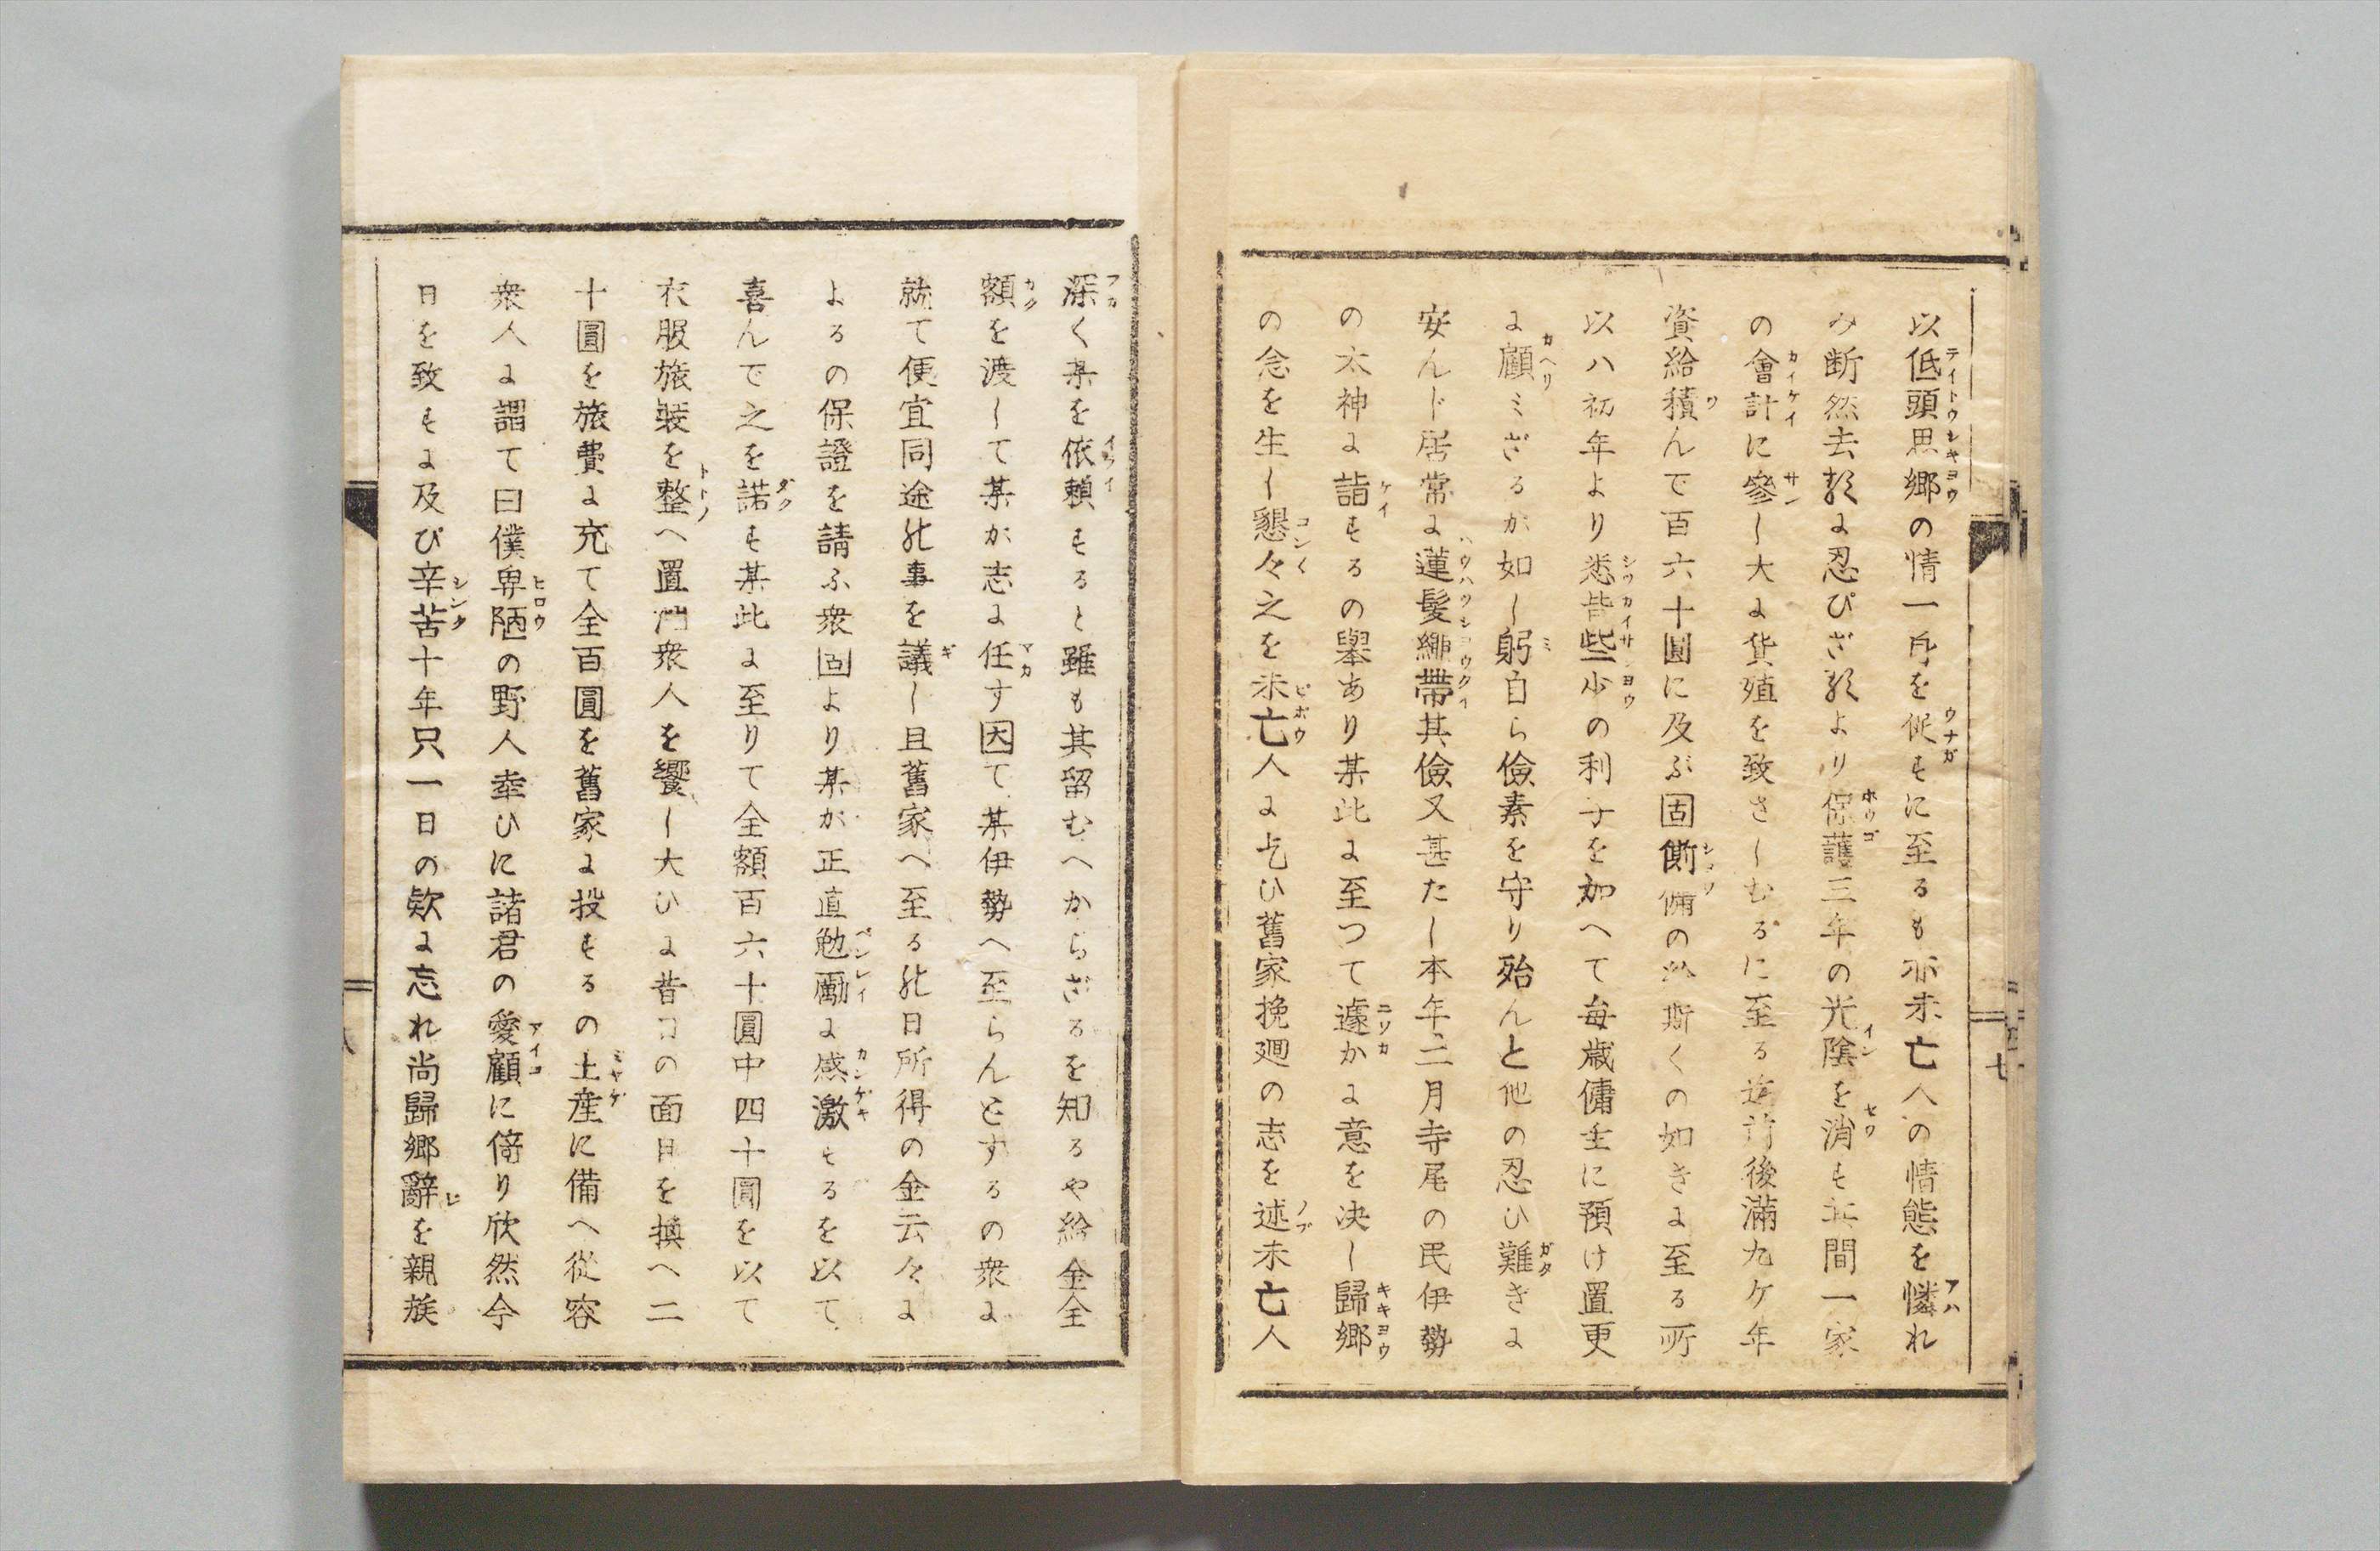 以低頭思郷の情一身を促もに至るも亦未亡人の情態を憐れ
み断然去るに忍びざるより保護三年の光陰を消も其間一家
の會計に參し大に貨殖を致さしむるに至る迄前後滿九ケ年
資給積んで百六十圓に及ぶ固厮傭の斯くの如きに至る所
以ハ初年より悉皆些少の利子を加へて毎歳傭主に預け置更
に顧ミざるが如し躬自ら儉素を守り殆んと他の忍ひ難きに
安んド居常に蓬髪繩帶其儉又甚たし本年二月寺尾の民伊勢
の太神に詣もるの擧あり某此に至つて遽かに意を决し歸郷
の念を生し懇々之を未亡人に乞ひ舊家挽廻の志を述未亡人
七
深く某を依頼もると雖も其留むへからざるを知るや給金全
額を渡して某が志に任す因て某伊勢へ至らんとするの衆に
就て便宜同途此事を議し且舊家へ至る此日所得の金云々に
よるの保證を請ふ衆固より某が正直勉勵に感激もるを以て
喜んで之を諾も某此に至りて全額百六十圓中四十圓を以て
衣服旅裝を整へ置門衆人を饗し大ひに昔日の面目を換へ二
十圓を旅費に充て全百圓を舊家に投もるの土産に備へ從容
衆人に謂て曰僕卑陋の野人幸ひに諸君の愛顧に倚り欣然今
日を致もに及び辛苦十年只一日の歎に忘れ尚歸郷辭を親族